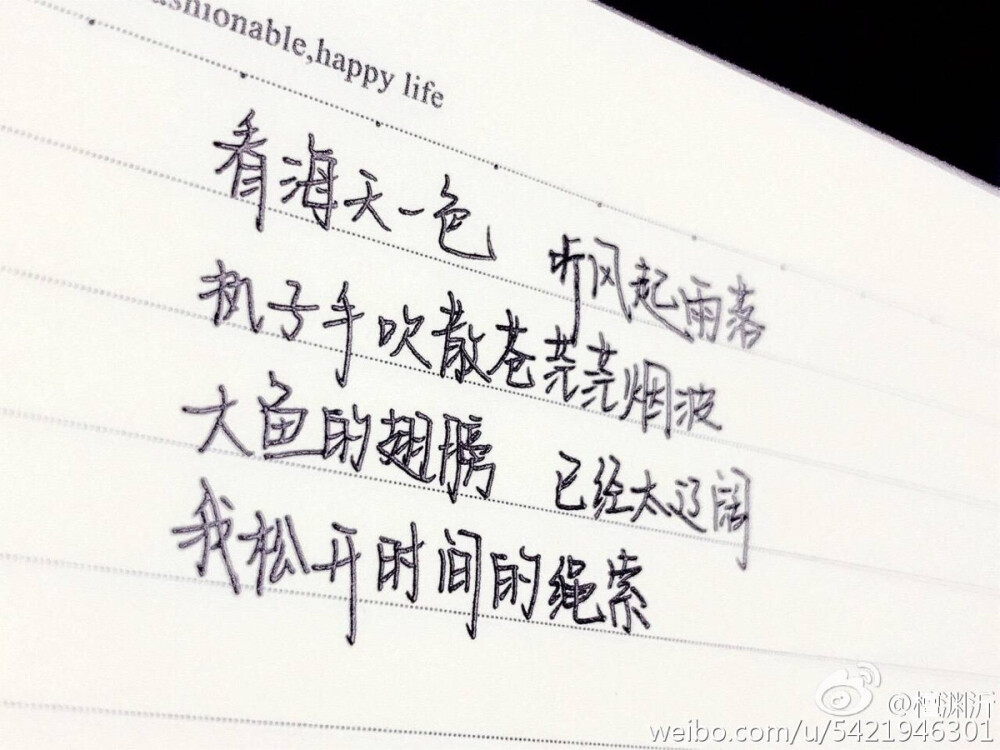 fashionable,happy life
看海天一色 听风起雨落
执子手吹散苍茫茫烟波
大鱼的翅膀 已经太辽阔
我松开时间的绳索
@桓渊沂
weibo.com/u/5421946301